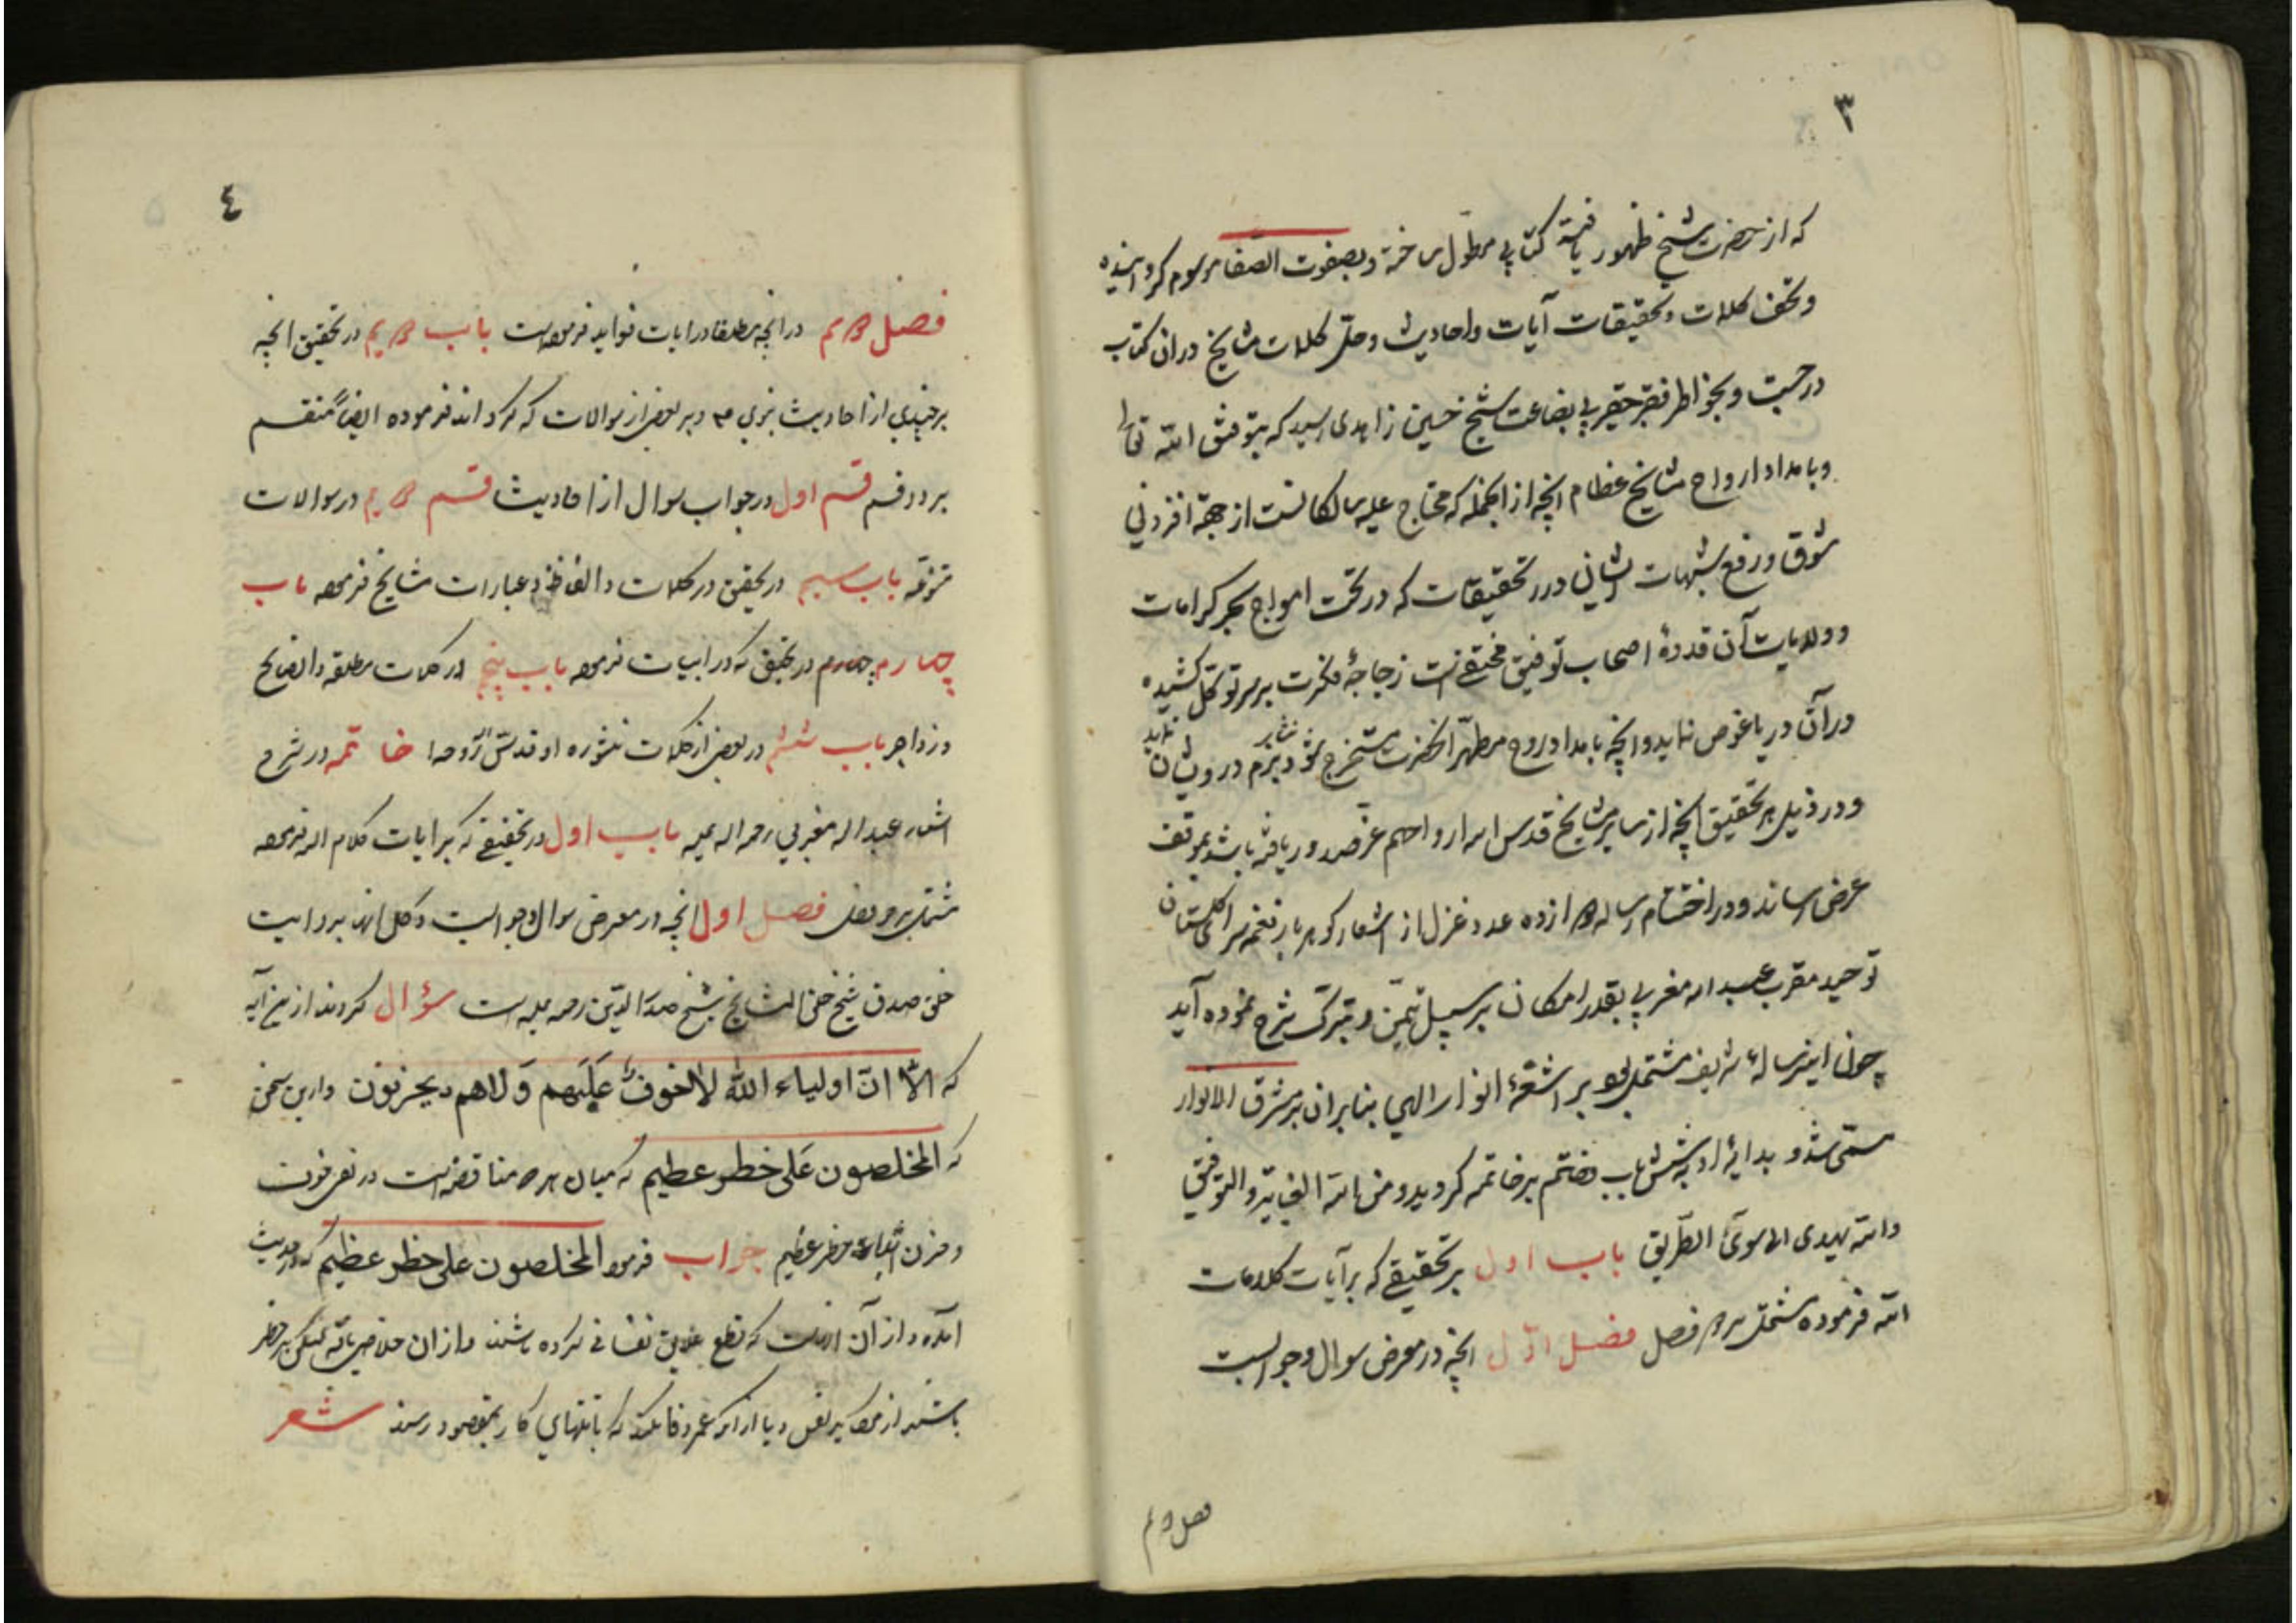 ٣
که از حضرت شیخ ظهور یافته کتابی مطول ساخته و بصفوت الصفا موسوم گردانیده
و تحف کلمات و تحقیقات آیات و احادیث و حل کلمات مشایخ در ان کتاب
درج و بخواطر فقیر حقیر بی بضاعت شیخ حسین زاهدی رسید که بتوفیق الله تعالی
و بامداد ارواح مشایخ عظام انچه از انجمله که محتاج علیه سالکانست از جهة افزونی
شوق و رفع شبهات ایشانی درر تحقیقات که در تحت امواج بحر کرامات
و ولایات آن قدوهٔ اصحاب توفیق مختفی است زجاجهٔ فکرت بر سر توکل کشیده
در آن دریا غوص نماید و انچه بامداد روح مطهر انحضرت مستخرج شود نثار بزم درویشان نماید
و در ذیل هر تحقیق انچه از سایر مشایخ قدس الله ارواحهم عز صدور یافته باشد بموقف
عرض رساند و در اختتام رساله دوازده عدد غزل از اشعار گوهربار نغمه سرای گلستان
توحید مقرب عبد الله مغربی بقدر امکان بر سبیل تیمن و تبرک شرح نموده آید
چون این رسالهٔ شریف مشتمل بود بر اشعهٔ انوار الهی بنابران بمشرق الانوار
مسمی شد و بدایهٔ او به شش باب و ختم بر خاتمه گردید و من الله الغایة و التوفیق
والله یهدی الی سوی الطریق باب اول بر تحقیقی که بر آیات کلام
الله فرموده مشتمل بر دو فصل فصل اول انچه در معرض سوال و جوابست
فصل دویم
٤
فصل دویم در انچه مطلقا در ایات فواید فرموده است باب دویم در تحقیق انچه
بر چندی از احادیث نبوی ص و بر بعضی از سوالات که کرده اند فرموده ایضاً منقسم
بر دو قسم قسم اول در جواب سوال از احادیث قسم دویم در سوالات
متفرقه باب سیم در تحقیق در کلمات و الفاظ و عبارات مشایخ فرموده باب
چهارم چهارم در تحقیق که در ابیات فرموده باب پنجم در کلمات مطلقه و نصایح
و زواجر باب ششم در بعضی از کلمات منثوره او قدس روحه خاتمه در شرح
اشعار عبد الله مغربی رحمه الله علیه باب اول در تحقیقی که بر ایات کلام الله فرموده
مشتمل بر دو فصل فصل اول انچه در معرض سوال و جوابست و کل انها بروایت
شیخ المشایخ شیخ صدر الدین رحمه علیه است سؤال کردند از شیخ آیه
که الا ان اولیاء الله لا خوف علیهم ولا هم یحزنون و از این سخن
که المخلصون علی خطر عظیم که میان هر دو مناقضه است در نفی خوف
و حزن اثبات خطر عظیم جواب فرمود المخلصون علی خطر عظیم که در حدیث
آمده و از آن انست که قطع علایق نفسانی نکرده باشند و از ان خلاص نیافته لیکن بر خطر
باشند از مکاید نفس و یا از انکه عمر وفا نکند که بانتهای کار بمقصود رسند شعر